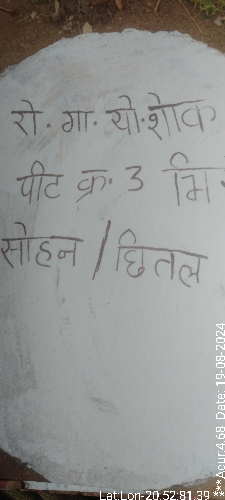 रो. गा. यो. शोक
पीट क्र. 3 मि.
सोहन / छितल
Lat:Lon-20.52:81.39
***Acur:4.68 Date: 19-08-2024